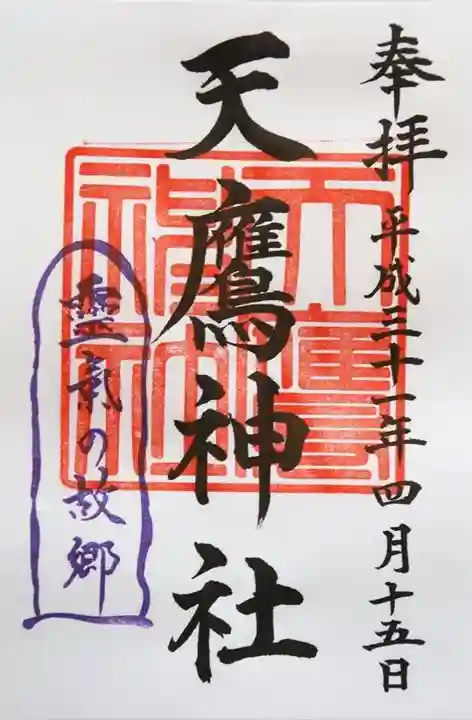 奉拝
平成三十一年四月十五日
天鷹神社
天鷹神社
靈氣の故郷